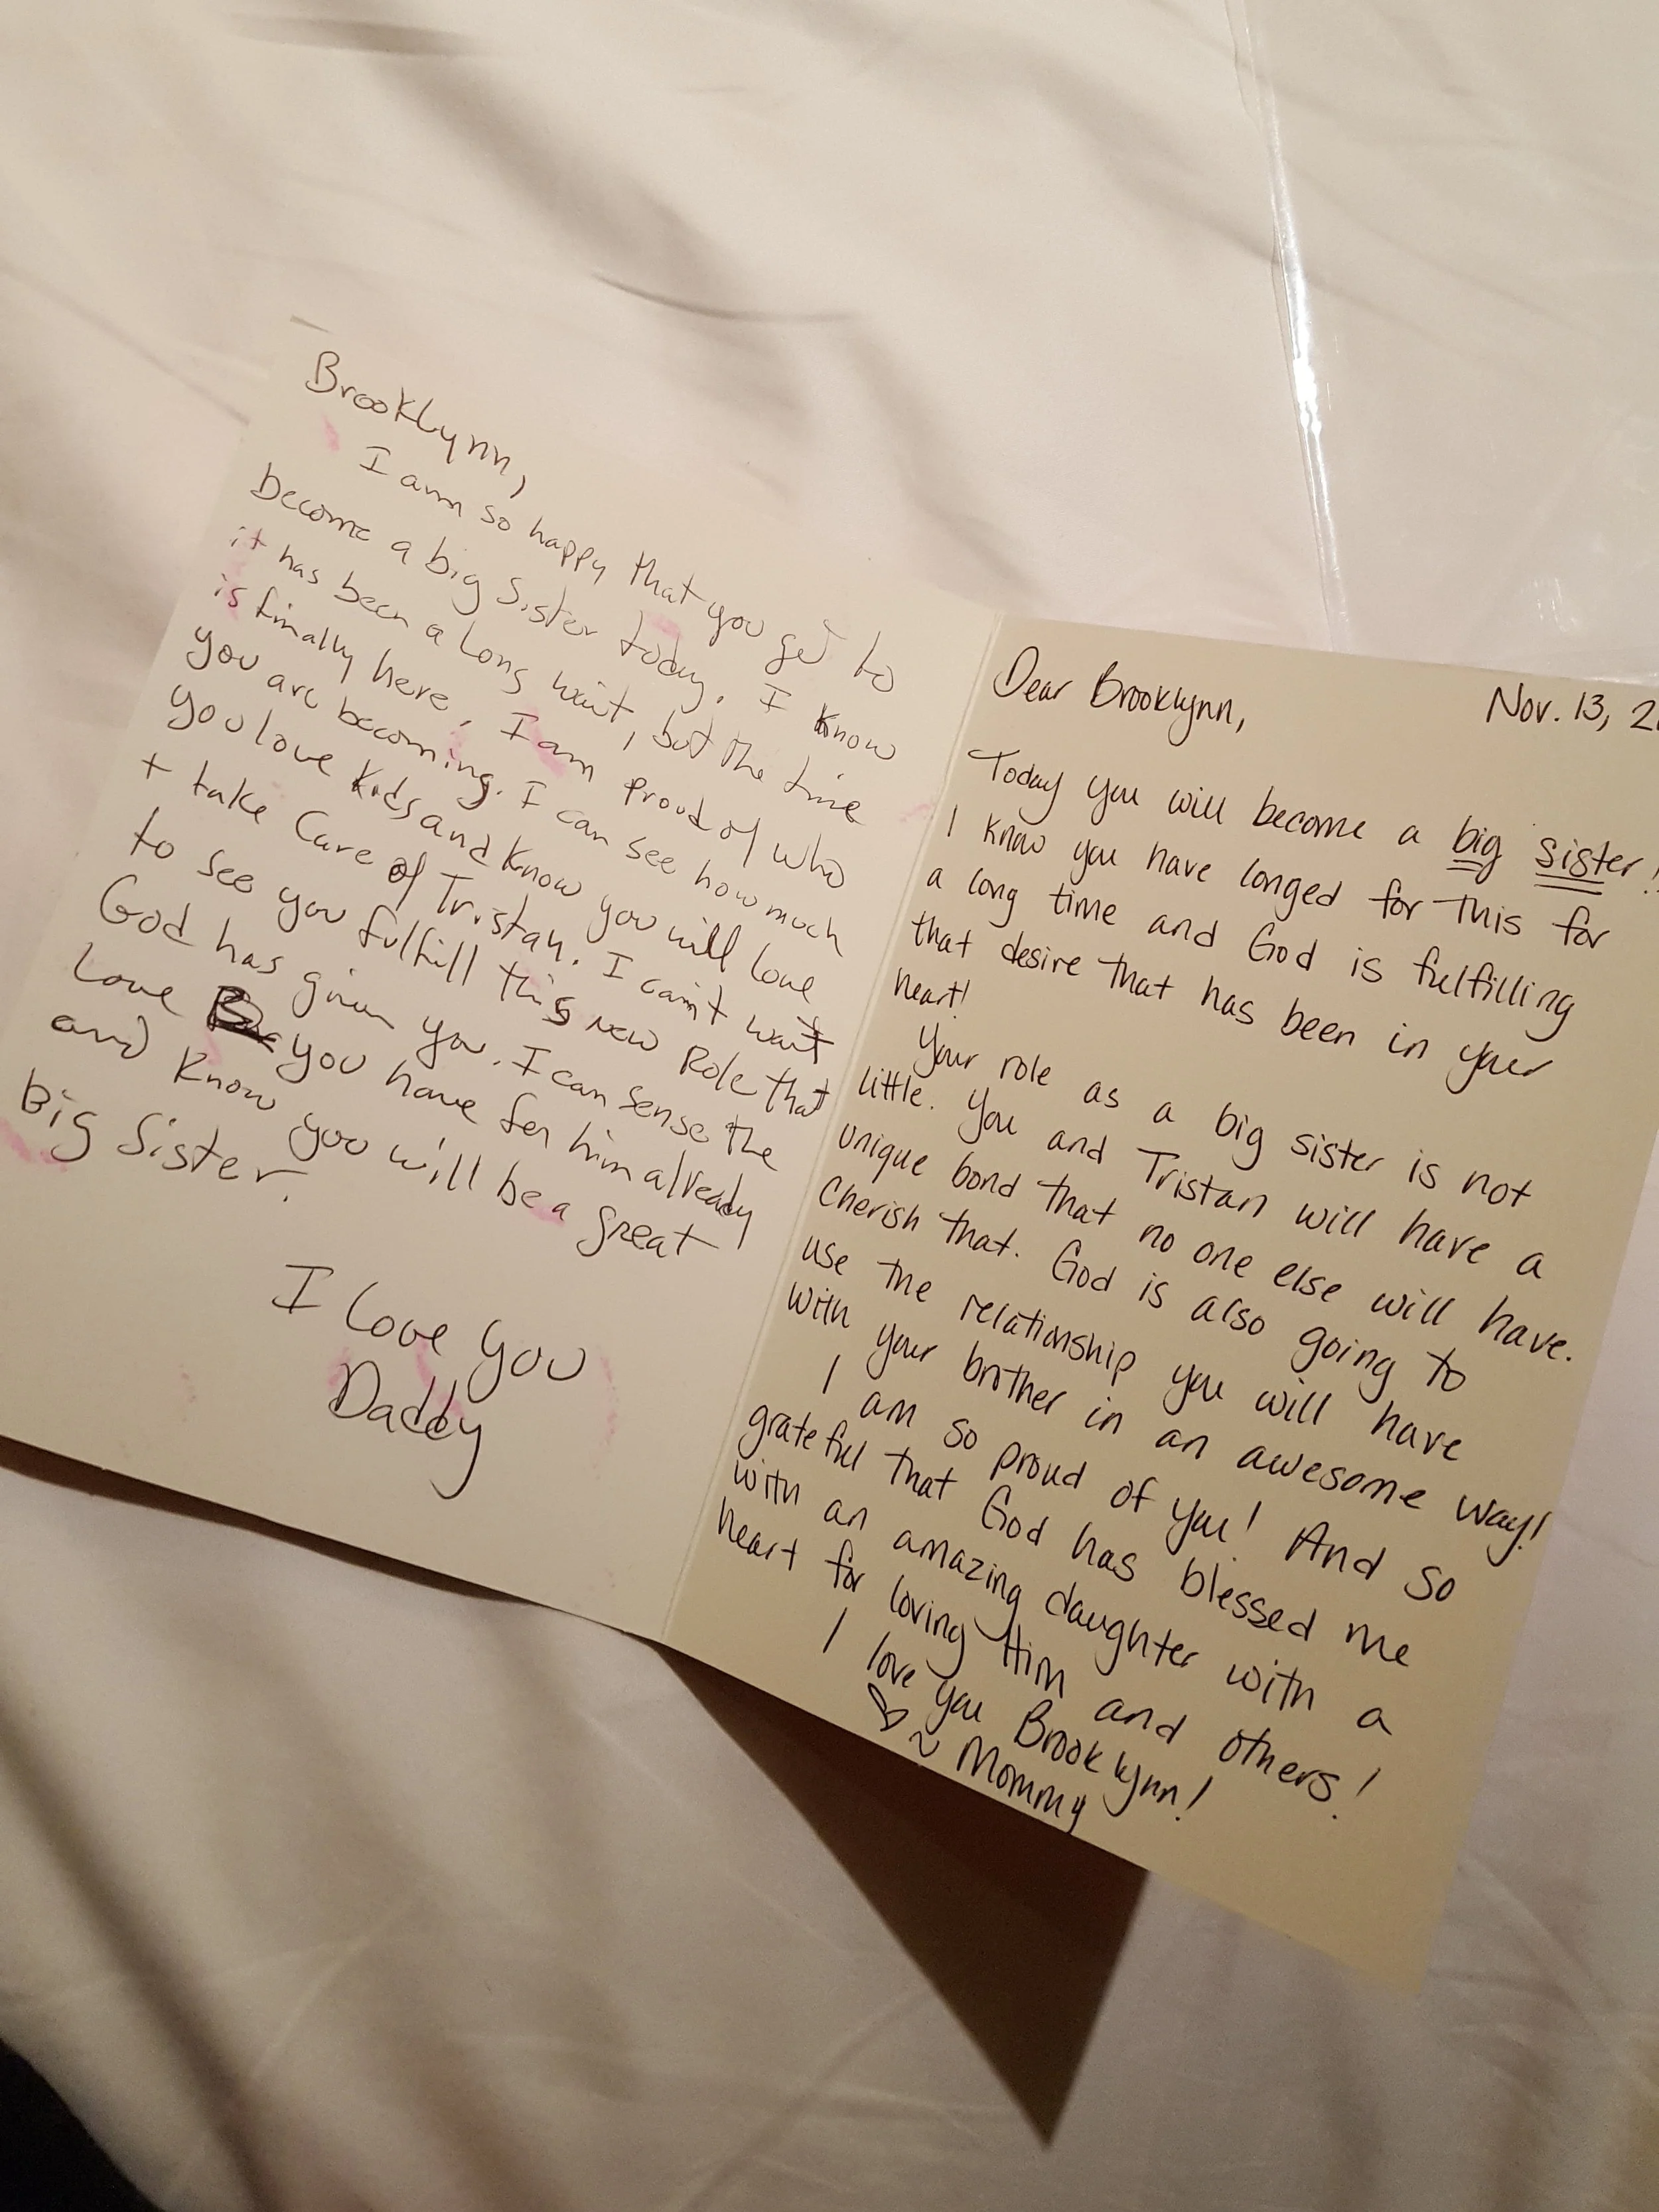 Brooklynn,
I am so happy that you get to
become a big Sister today. I know
it has been a long wait, but the time
is finally here. I am proud of who
you are becoming. I can see how much
you love kids and know you will love
+ take Care of Tristan. I can't wait
to see you fulfill this new Role that
God has given you. I can sense the
Love you have for him already
and know you will be a great
Big Sister.
I love you
Daddy
Dear Brooklynn, Nov. 13, 2
Today you will become a big sister!
I know you have longed for this for
a long time and God is fulfilling
that desire that has been in your
heart!
Your role as a big sister is not
little. You and Tristan will have a
unique bond that no one else will have.
Cherish that. God is also going to
use the relationship you will have
with your brother in an awesome way!
I am so proud of you! And so
grateful that God has blessed me
with an amazing daughter with a
heart for loving Him and others!
I love you Brooklynn!
♡ ~ Mommy